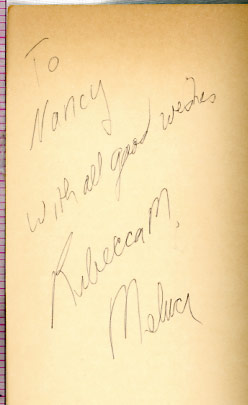 To
Nancy
With all good wishes
Rebecca M.